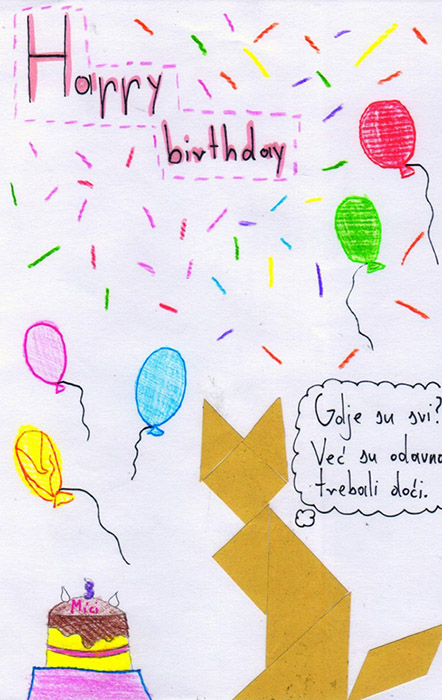 Harry
birthday
Gdje su svi?
Već su odavno
trebali doći.
Mici